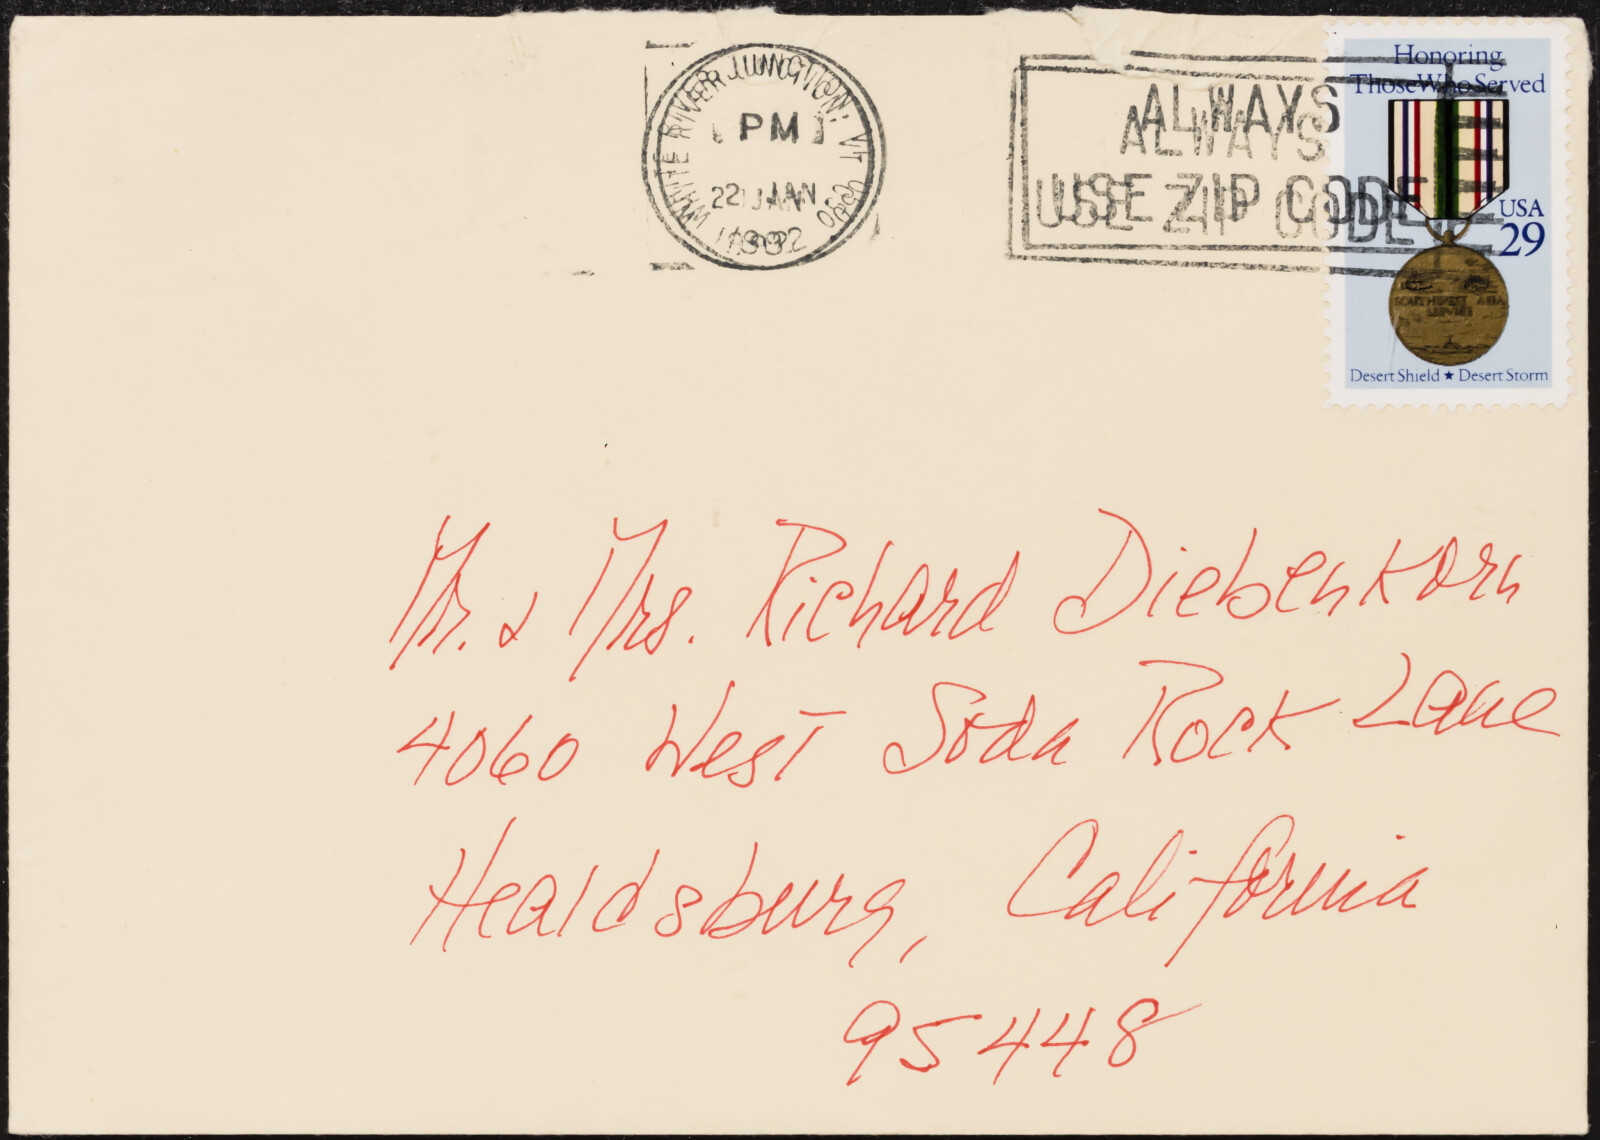 WHITE RIVER JUNCTION VT
PM
22 JAN
1992
ALWAYS
USE ZIP CODE
Honoring
Those Who Served
USA
29
SOUTHWEST ASIA
SERVICE
Desert Shield ★ Desert Storm
Mr. & Mrs. Richard Diebenkorn
4060 West Soda Rock Lane
Healdsburg, California
95448